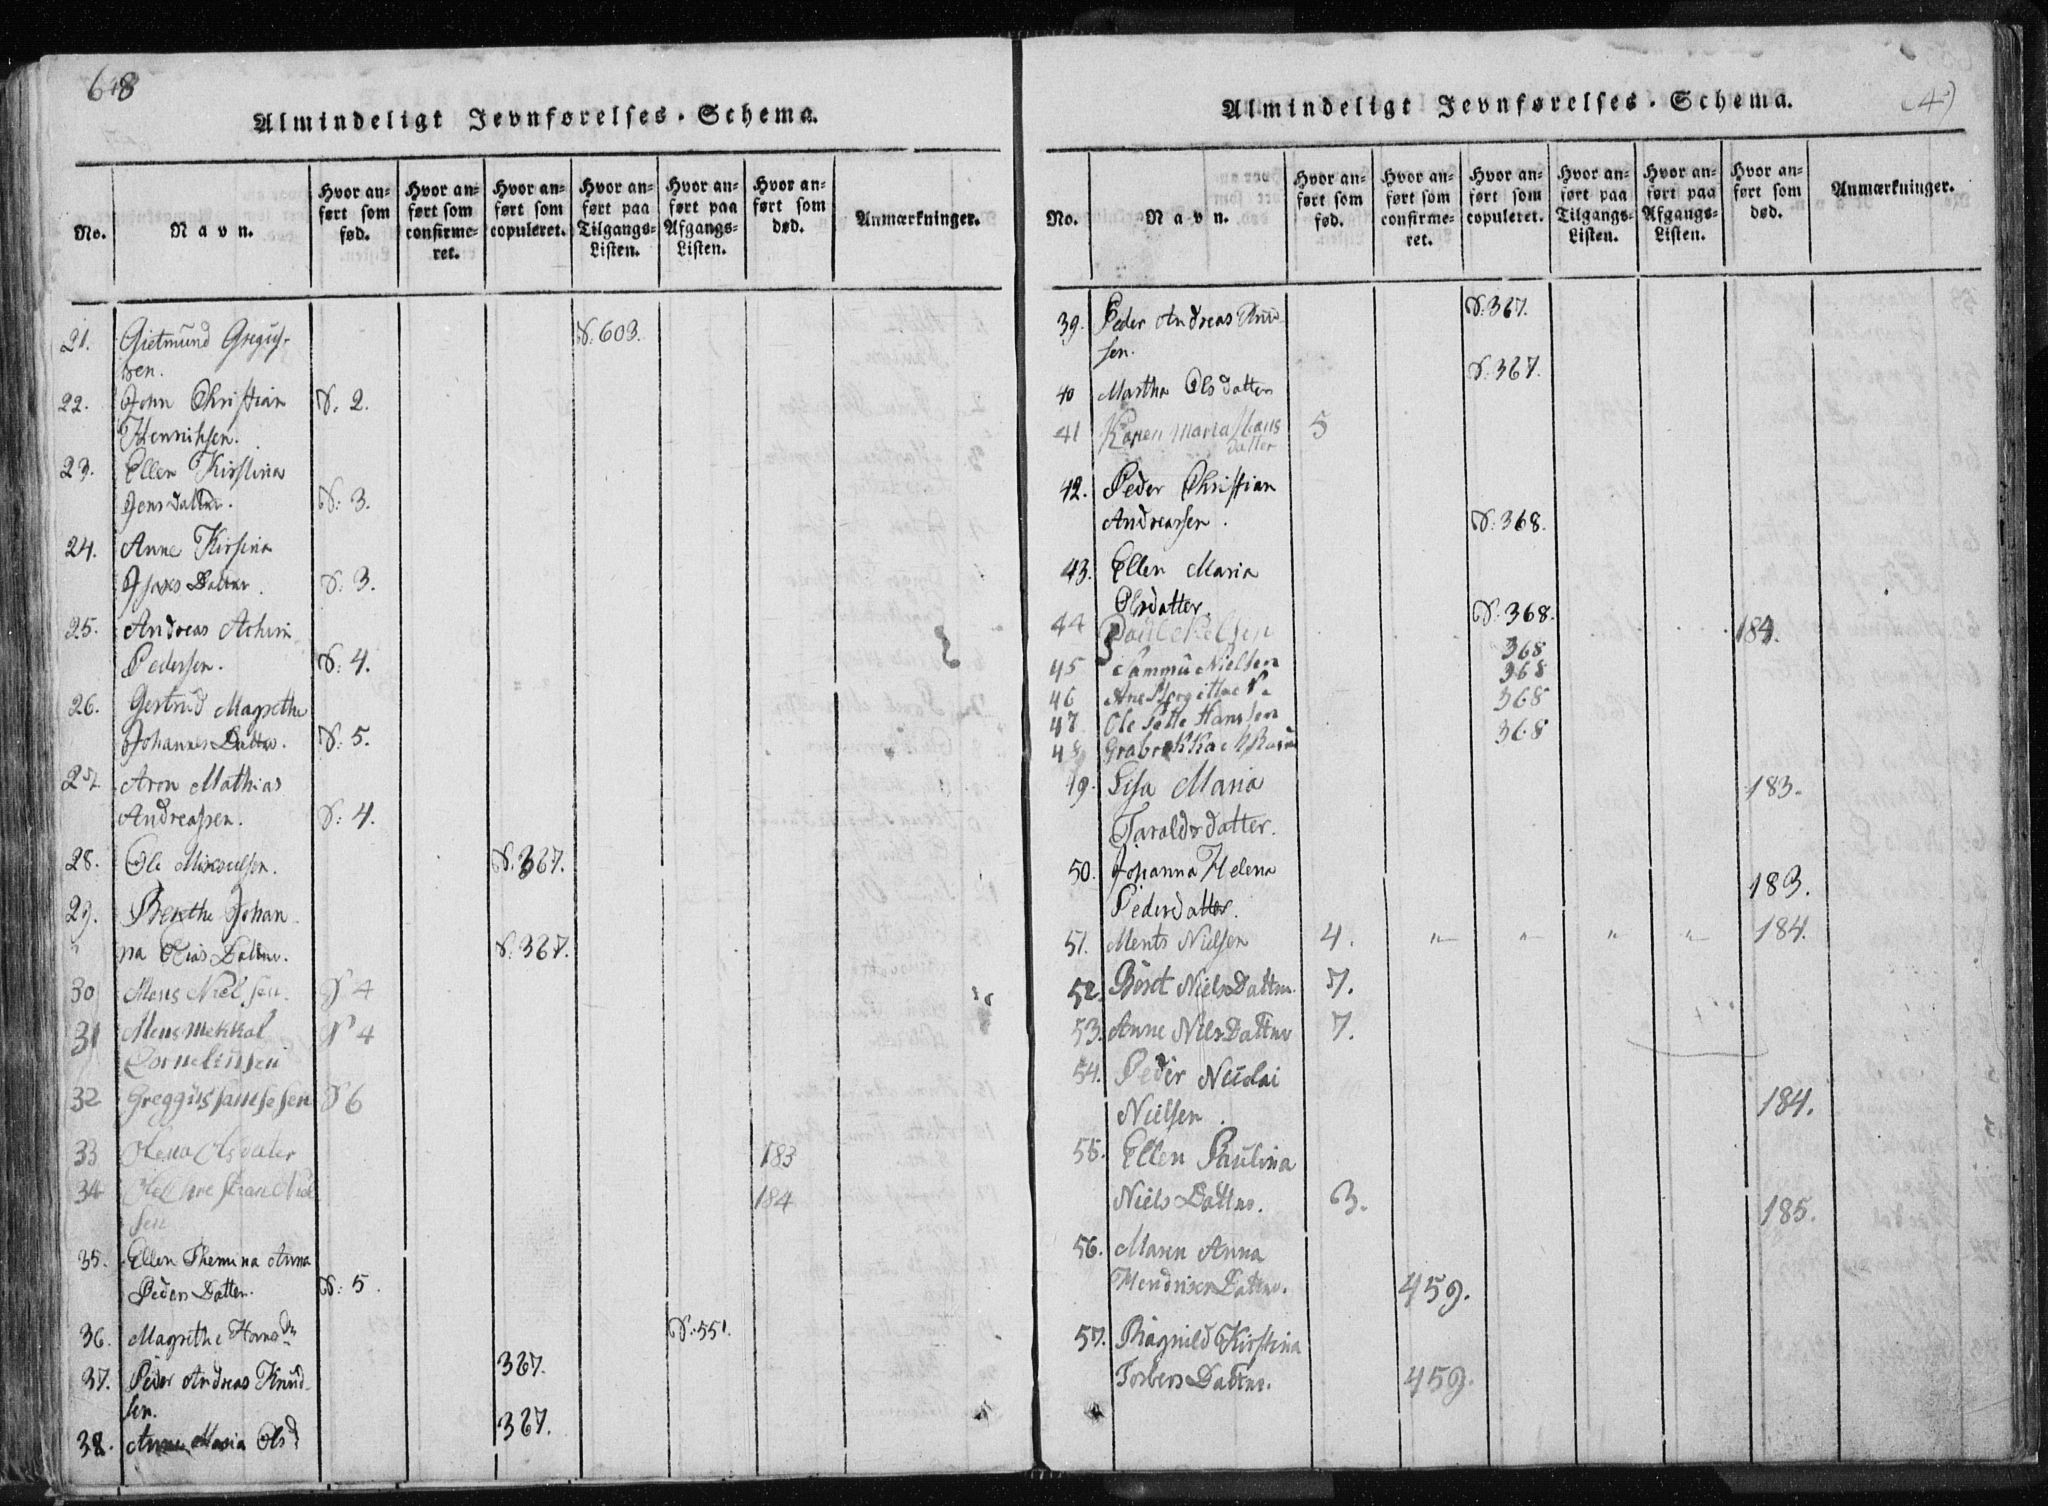 648
Almindeligt Jevnførelses-Schema.
No.
Navn.
Hvor anført som fød.
Hvor anført som confirmeret.
Hvor anført som copuleret.
Hvor anført paa Tilgangs-Listen.
Hvor anført paa Afgangs-Listen.
Hvor anført som død.
Anmærkninger.
21. Gietmund Greguſ- S. 603.
sen.
22. John Christian S. 2.
Henriksen.
23. Ellen Kirstina
Jens datter. S: 3.
24. Anne Kirstina
Isaks Datter. S: 3.
25. Andreas Achim
Pedersen. S: 4.
26. Gertrud Magrethe
Johannes Datter. S: 5.
27. Aron Mathias
Andreassen. S: 4.
28. Ole Mikkelsen. S. 367.
29. Berthe Johan
na Elias Datter. S. 367.
30 Mens Nielsen. S 4
31 Mens Mekkal S 4
Cornelinssen
32 Greggus samsesen S 6
33 Olena Olsdatter 183
34 Ole Christian Niel 184
sen
35. Ellen Themina Anna
Peders Datter. S: 5.
36. Magrethe Hans D S. 551.
37. Peder Andreas Knud- 367.
sen.
38. Anne Maria Olsd 367.
Almindeligt Jevnførelses-Schema.
No.
Navn.
Hvor anført som fød.
Hvor anført som confirmeret.
Hvor anført som copuleret.
Hvor anført paa Tilgangs-Listen.
Hvor anført paa Afgangs-Listen.
Hvor anført som død.
Anmærkninger.
39. Peder Andreas S. 367.
sen.
40 Martha Olsdatter S. 367.
41 Karen Maria Hans 5
datter
42. Peder Christian
Andreassen. S. 368.
43. Ellen Maria
Olsdatter. S. 368.
44 184.
45 Nielsen 368
368
46 Ane 368
47 Ole Hanssen 368
48
49. Lisa Maria 183.
Taraldsdatter.
50. Johanna Helena
Pedersdatter. 183.
51. Ments Nielsen 4. " " " " 184.
52. Beret Niels Datter. 7.
53. Anne Niels Datter 7.
54. Peder Nicolai
Nielsen. 184.
55. Ellen Paulina
Niels Datter. 3. 185.
56. Maren Anna
Hendrics Datter. 459.
57. Ragnild Kirstina
Torbers Datter. 459.